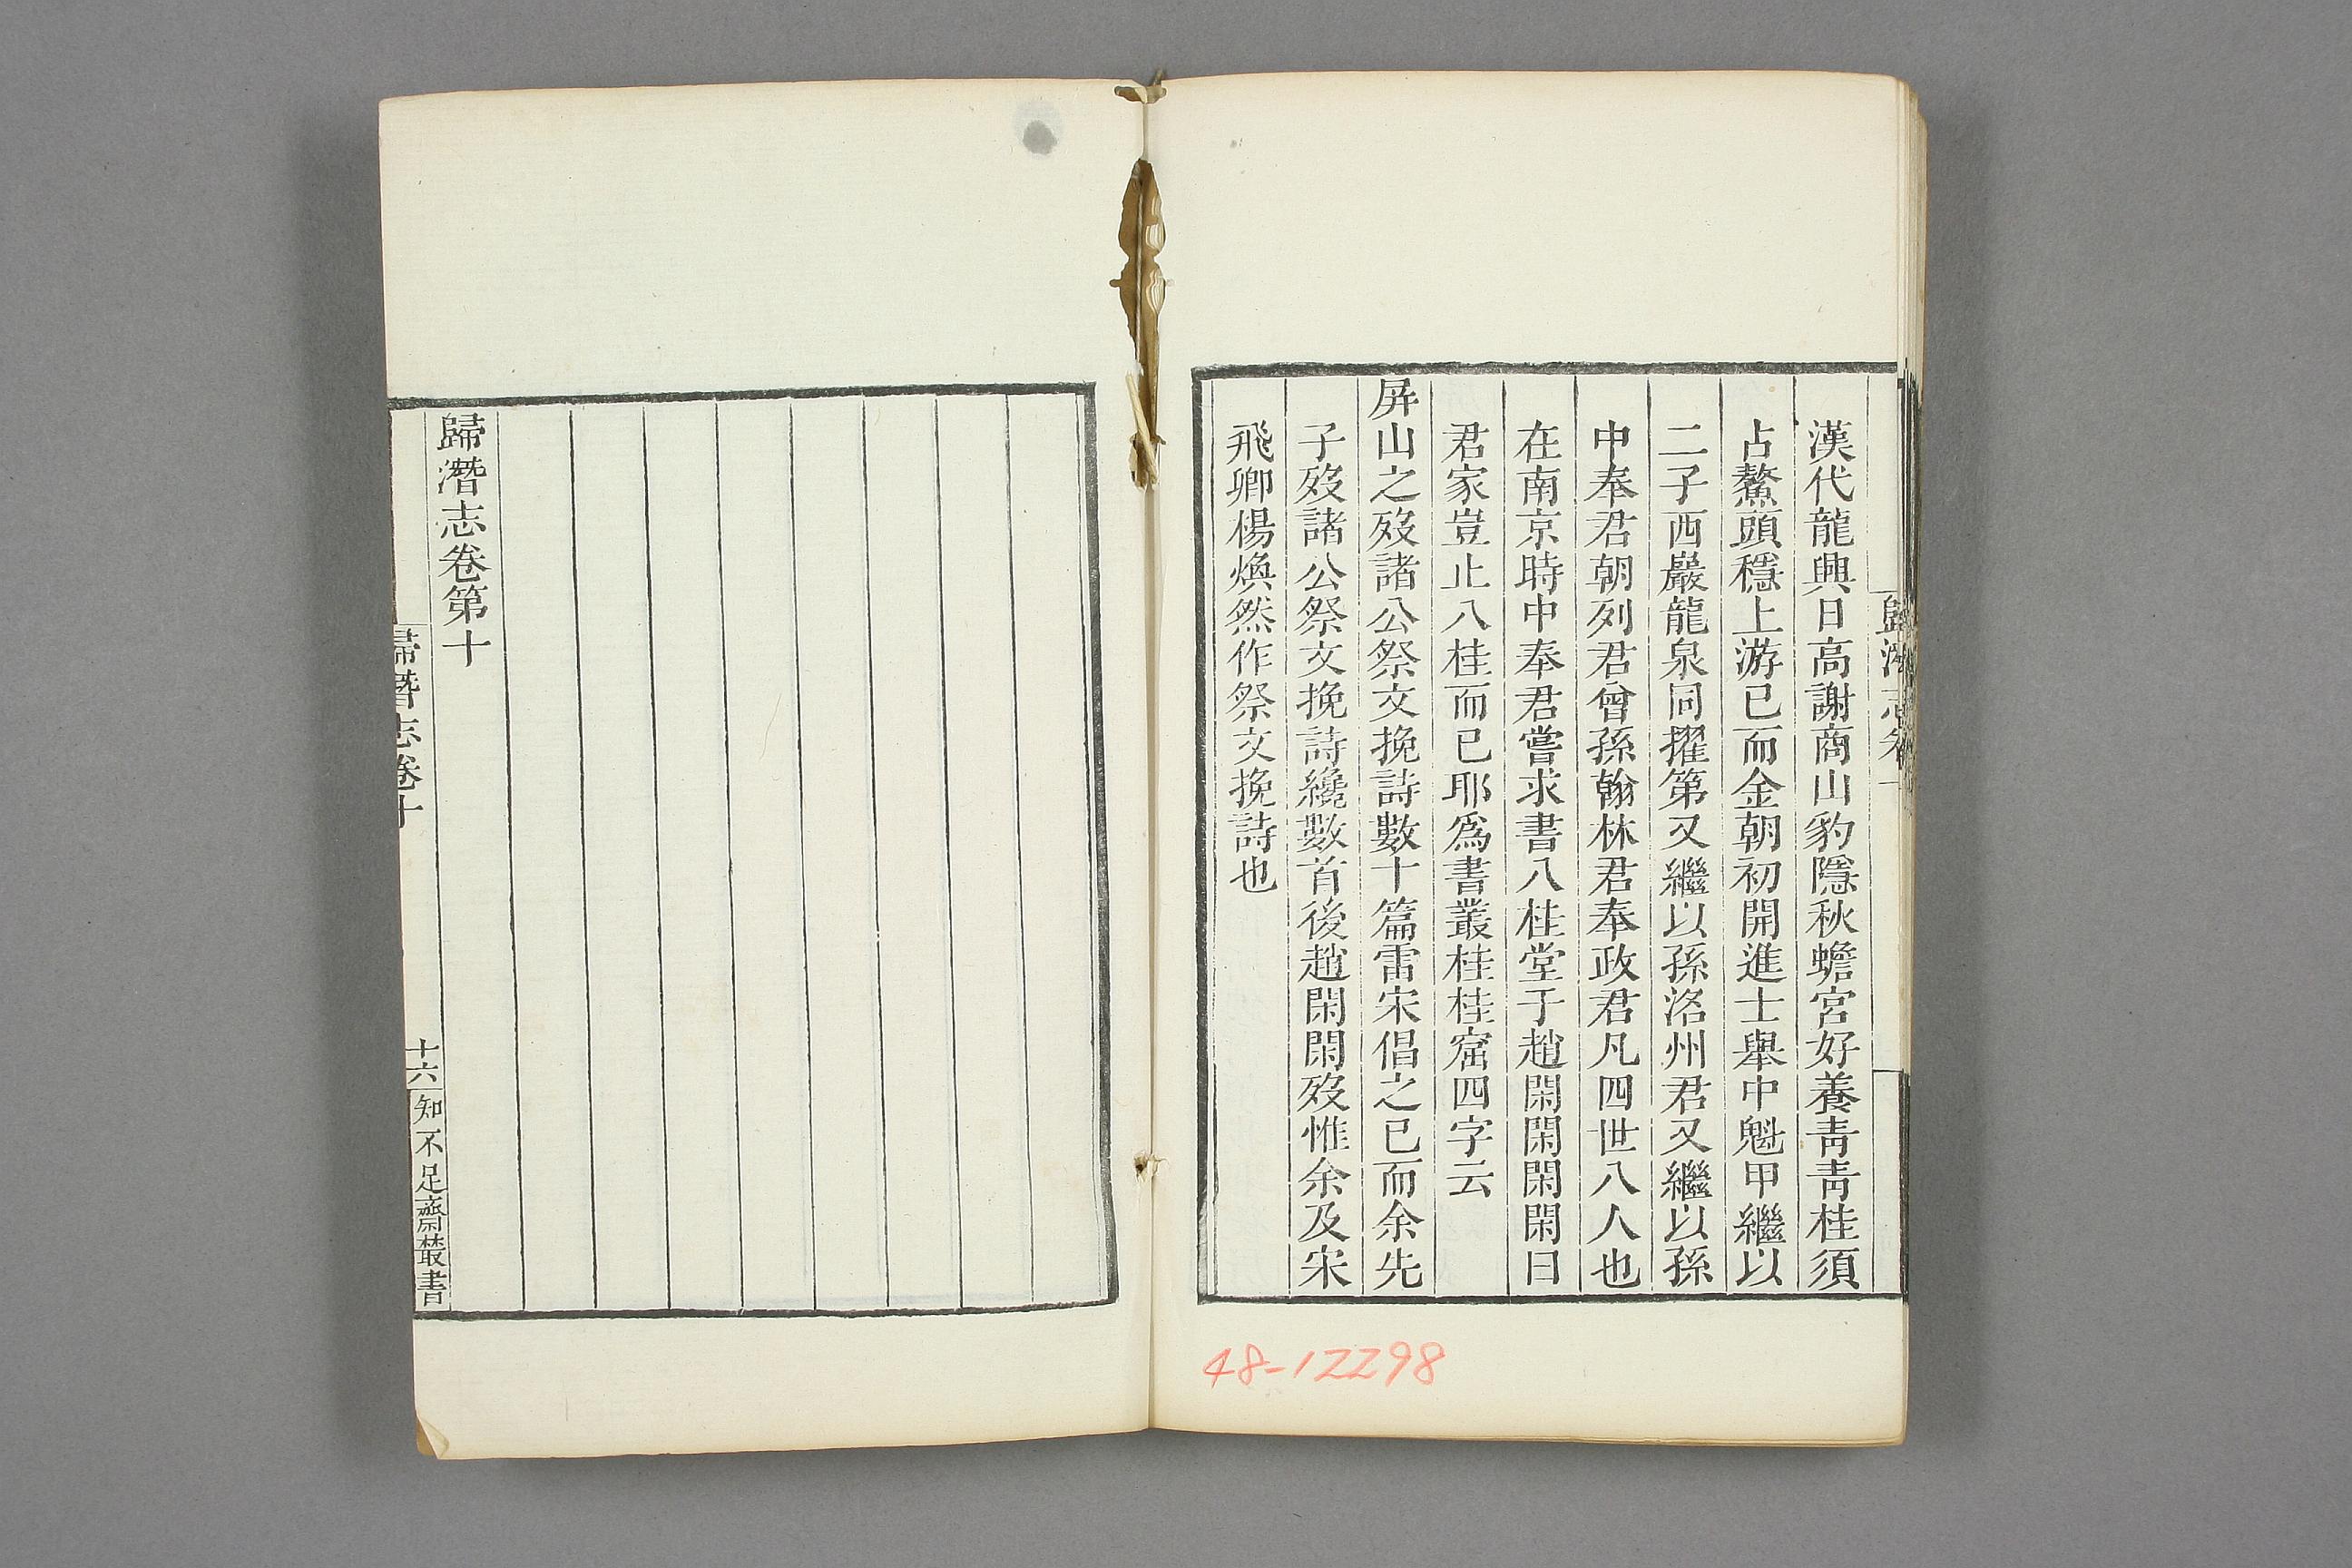 漢代龍興日高謝商山豹隱秋蟾宮好養青青桂須
占鰲頭穩上游已而金朝初開進士舉中魁甲繼以
二子西巖龍泉同擢第又繼以孫洺州君又繼以孫
中奉君朝列君曾孫翰林君奉政君凡四世八人也
在南京時中奉君嘗求書八桂堂于趙閑閑閑閑曰
君家豈止八桂而已耶爲書叢桂桂窟四字云
屏山之歿諸公祭文挽詩數十篇雷宋倡之已而余先
子歿諸公祭文挽詩纔數首後趙閑閑歿惟余及宋
飛卿楊煥然作祭文挽詩也
48-12298
歸潛志卷第十
歸潛志卷十
十六
知不足齋叢書